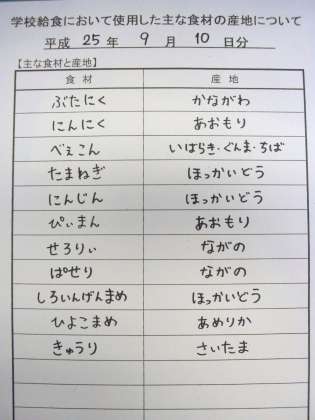 学校給食において使用した主な食材の産地について
平成 25 年 9 月 10 日分
【主な食材と産地】
食材 産地
ぶたにく かながわ
にんにく あおもり
べぇこん いはらき・ぐんま・ちば
たまねぎ ほっかいどう
にんじん ほっかいどう
ぴぃまん あおもり
せろりぃ ながの
ぱせり ながの
しろいんげんまめ ほっかいどう
ひよこまめ あめりか
きゅうり さいたま